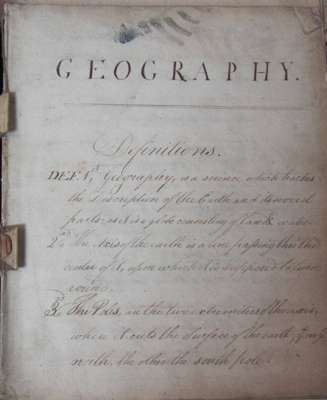 GEOGRAPHY.
Definitions.
DEFN. 1st Geography, is a science which teaches
the Discription of the Earth, and its several
parts, as it is a globe consisting of Land & water.
2d The Axis of the earth is a line passing thro' the
center of it, upon which it is supposed to turn
round.
3d The Poles, are the two extremities of the axis,
where it cuts the surface of the earth; one
north, the other the south pole.